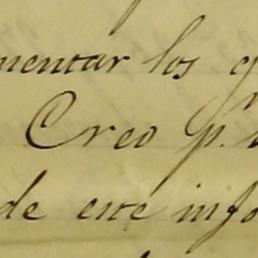 mentar los
Creo p.
de este info